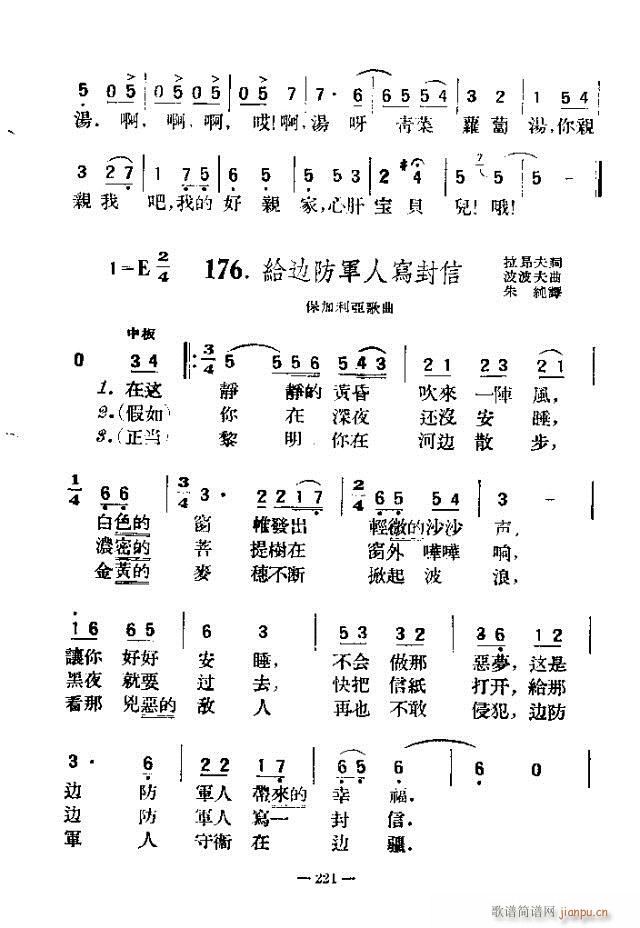 5 05 05 05 05 05 7 7· 6 65 54 3 2 1 54
湯. 啊, 啊, 啊, 哎! 啊, 湯 呀 青菜 蘿蔔 湯, 你親
3 27 1 75 6 5 5 53 2 #4 5 5 5 —
親我 吧, 我的 好 親 家, 心肝 宝 貝 兒! 哦!
1=E 2/4 176. 給边防軍人寫封信
拉昂夫詞
波波夫曲
朱 純譯
保加利亞歌曲
中板
0 34 3/4 5 556 543 21 023 21
1. 在这 靜 靜的 黃昏 吹來 一陣 風,
2. (假如) 你 在 深夜 还沒 安 睡,
3. (正当) 黎 明 你在 河边 散 步,
1/4 66 3/4 3· 2217 2/4 65 54 3 —
白色的 窗 帷發出 輕微的沙沙 声,
濃密的 菩 提樹在 窗外 嘩嘩 响,
金黃的 麥 穗不断 掀起 波 浪,
16 65 6 3 53 32 36 12
讓你 好好 安 睡, 不会 做那 惡夢, 这是
黑夜 就要 过 去, 快把 信紙 打开, 給那
看那 兇惡的 敌 人 再也 不敢 侵犯, 边防
3· 6 22 17 65 6 6 0
边 防 軍人 帶來的 幸 福.
边 防 軍人 寫一 封 信.
軍 人 守衛 在 边 疆.
— 221 —
歌谱简谱网
jianpu.cn